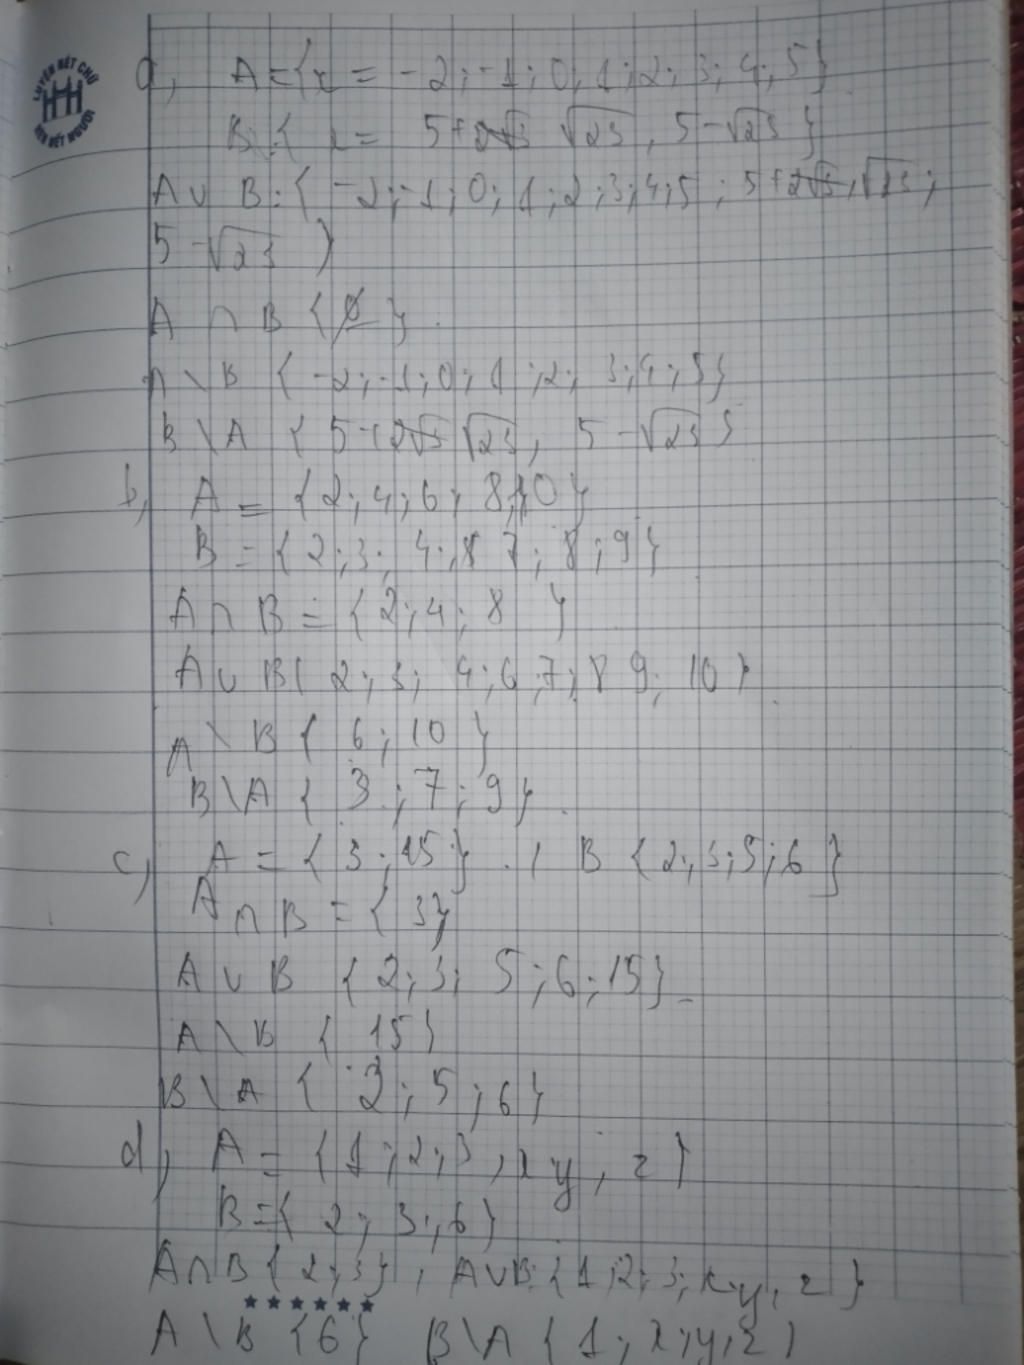 LUYỆN NÉT CHỮ
RÈN NẾT NGƯỜI
a, A = {x = -2; -1; 0; 1; 2; 3; 4; 5}
B: { x = 5+ √23, 5-√23 }
A ∪ B: { -2; -1; 0; 1; 2; 3; 4; 5; 5+ √23;
5-√23 }
A ∩ B { ∅ }
A \ B { -2; -1; 0; 1; 2; 3; 4; 5}
B \ A { 5+ √23, 5-√23 }
b, A = {2; 4; 6; 8; 10}
B = {2; 3; 4; 7; 8; 9}
A ∩ B = {2; 4; 8 }
A ∪ B { 2; 3; 4; 6; 7; 8 9; 10}
A \ B { 6; 10 }
B \ A { 3; 7; 9}.
c, A = {3; 15}. ; B {2; 3; 5; 6 }
A ∩ B = { 3}
A ∪ B {2; 3; 5; 6; 15}
A \ B { 15}
B \ A { 2; 5; 6}
d, A = {1; 2; 3, x y; z}
B = { 2; 3; 6}
A ∩ B {2; 3}, A ∪ B: {1; 2; 3; x y, z }
A \ B {6} B \ A { 1; x; y; z }